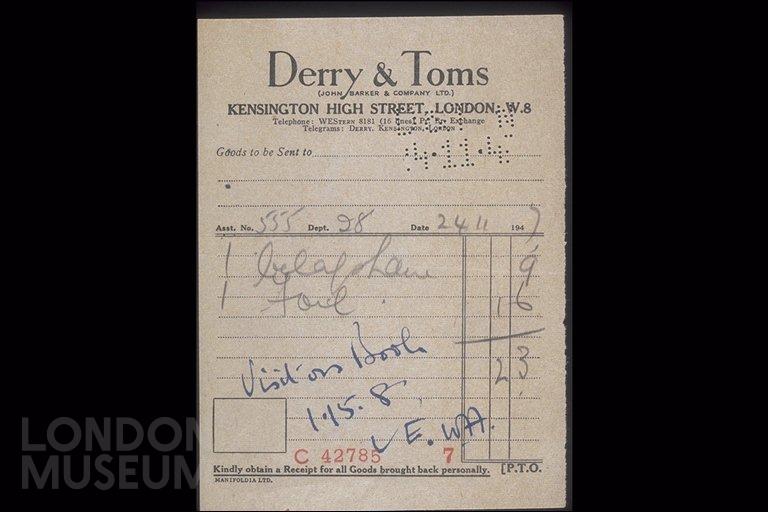 Derry & Toms
(JOHN BARKER & COMPANY LTD.)
KENSINGTON HIGH STREET, LONDON, W.8
Telephone: WESTERN 8181 (16 lines) Pr. Br. Exchange
Telegrams: DERRY, KENSINGTON, LONDON
Goods to be Sent to
Asst. No. 555 Dept. 28 Date 24 11 1947
1 9
1 Foil 1 6
2 3
Visitors Book
1.15.8
E. W.A.
C 42785 7
Kindly obtain a Receipt for all Goods brought back personally. [P.T.O.
MANIFOLDIA LTD.
LONDON
MUSEUM